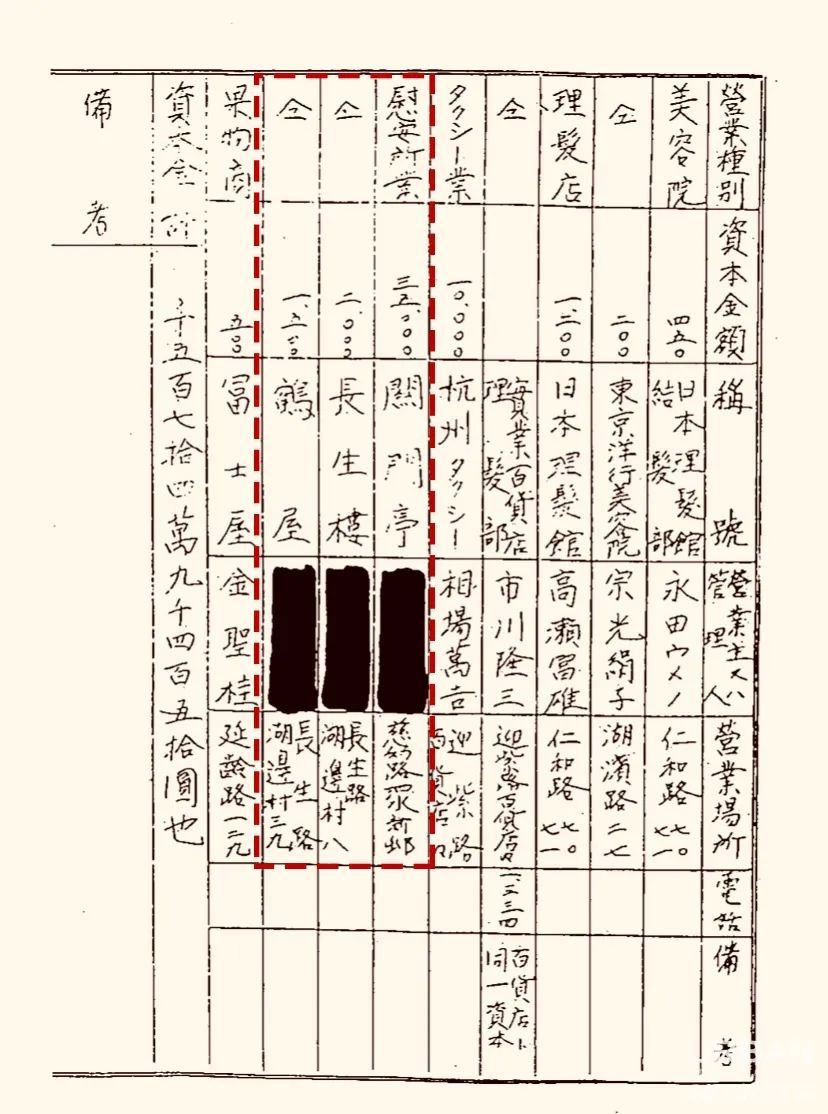 營業種別 資本金額 稱號 營業主又ハ管理人 營業場所 電話 備考
美容院 四五〇 日本理髮館結髮部 永田ウメノ 仁和路七〇 七一
仝 二〇〇 東京洋行美容院 宗光絹子 湖濱路二七
理髮店 一、二〇〇 日本理髮館 高瀨冨雄 仁和路七〇 七一
仝 實業百貨店理髮部 市川隆三 迎紫路百貨店 一、二三四 百貨店ト同一資本
タクシー業 一〇、〇〇〇 杭州タクシー 相場萬吉 迎紫路百貨店
慰安所業 三五、〇〇〇 關門亭 慈幼路
仝 二、〇〇〇 長生樓 長生路湖邊村八
仝 一、五〇〇 鶴屋 長生路湖邊村三九
果物商 五〇〇 冨士屋 金聖桂 延齡路一二九
資本金計 千五百七拾四萬九千四百五拾圓也
備考